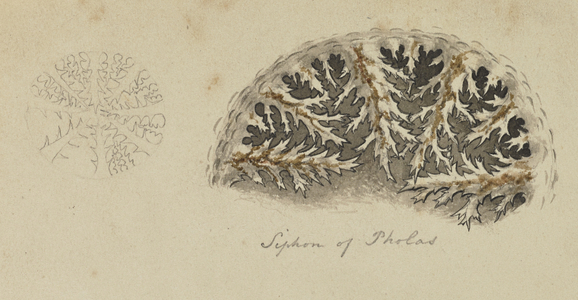 Siphon of Pholas